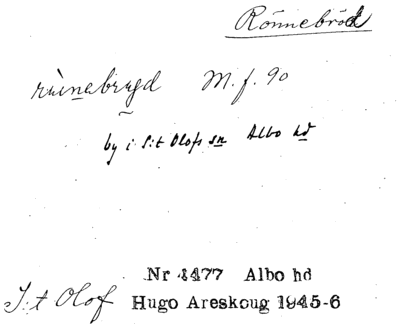 Rönnebröd
rùinebrygd M. f. 90
by i S:t Olofs sn Albo hd
Nr 4477 Albo hd
S:t Olof Hugo Areskoug 1945-6